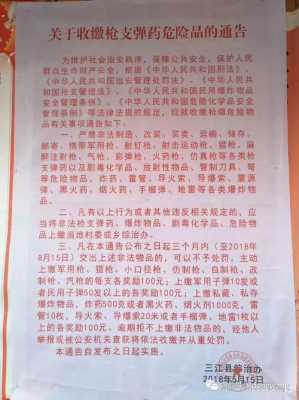 关于收缴枪支弹药危险品的通告
为维护社会治安秩序，保障公共安全，保护人民
群众生命财产安全，根据《中华人民共和国刑法》、
《中华人民共和国治安管理处罚法》、《中华人民共和
国枪支管理法》、《中华人民共和国民用爆炸物品
安全管理条例》、《中华人民共和国危险化学品安全
管理条例》等法律法规的规定，现就收缴枪爆危险物
品有关事项通告如下：
一、严禁非法制造、改装、买卖、运输、储存、
邮寄、携带军用枪、射钉枪、射击运动枪、猎枪、麻
醉注射枪、气枪、彩弹枪、火药枪、仿真枪等各类枪
支弹药以及剧毒化学品、放射性物品、管制刀具、弩
等危险物品，炸药、雷管、导火索、导爆索、震源
弹、黑火药、烟火药、手榴弹、地雷等各类爆炸物
品。
二、凡有以上行为或者其他违反相关规定的，应
当将非法枪支弹药、爆炸物品、剧毒化学品、危险物
品上缴当地村委或乡综治办。
三、凡在本通告公布之日起三个月内（至2018年
8月15日）交出上述非法物品的，可以不予处罚。主动
上缴军用枪、猎枪、小口径枪、仿制枪、自制枪、改
制枪、汽枪的每支各奖励100元；上缴军用子弹10发或
者民用子弹50发以上的各奖励100元；上缴私藏、私存
爆炸物品，炸药500克或者黑火药、烟火剂1000克、
雷管10枚、导火索、导爆索20米或者手榴弹、地雷1枚以
上的各奖励100元，逾期拒不上缴非法物品的，经他人
举报或被公安机关查获将依法收缴并从重处罚。
本通告自发布之日起实施。
三江县综治办
2018年5月15日